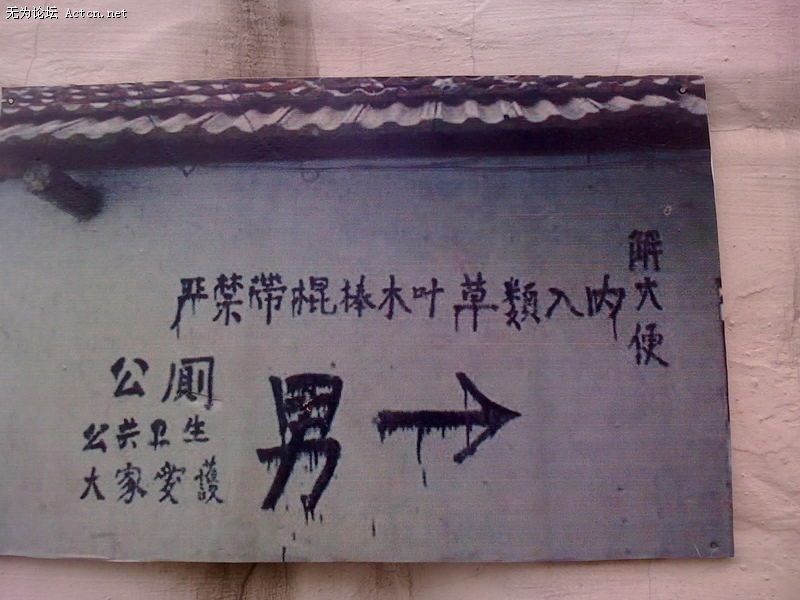 无为论坛 Actcn.net
严禁帶棍棒木叶草類入内
解大便
公厠
公共卫生
大家愛護
男